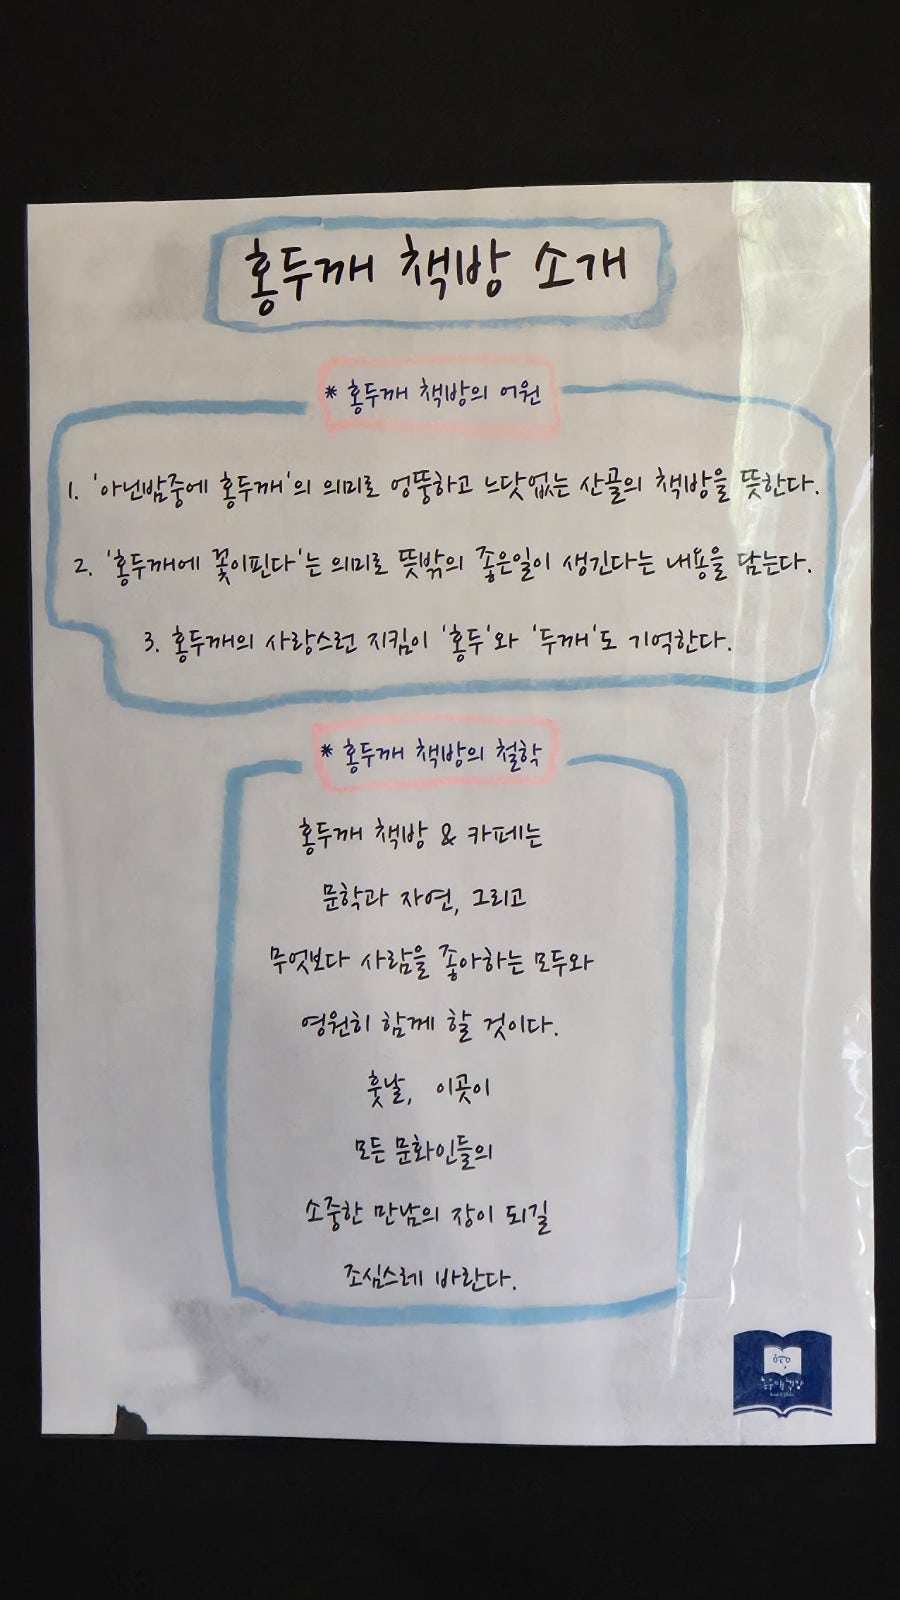 홍두깨 책방 소개
* 홍두깨 책방의 어원
1. '아닌밤중에 홍두깨'의 의미로 엉뚱하고 느닷없는 산골의 책방을 뜻한다.
2. '홍두깨에 꽃이핀다'는 의미로 뜻밖의 좋은일이 생긴다는 내용을 담는다.
3. 홍두깨의 사랑스런 지킴이 '홍두'와 '두깨'도 기억한다.
* 홍두깨 책방의 철학
홍두깨 책방 & 카페는
문학과 자연, 그리고
무엇보다 사람을 좋아하는 모두와
영원히 함께 할 것이다.
훗날, 이곳이
모든 문화인들의
소중한 만남의 장이 되길
조심스레 바란다.
홍두깨 책방